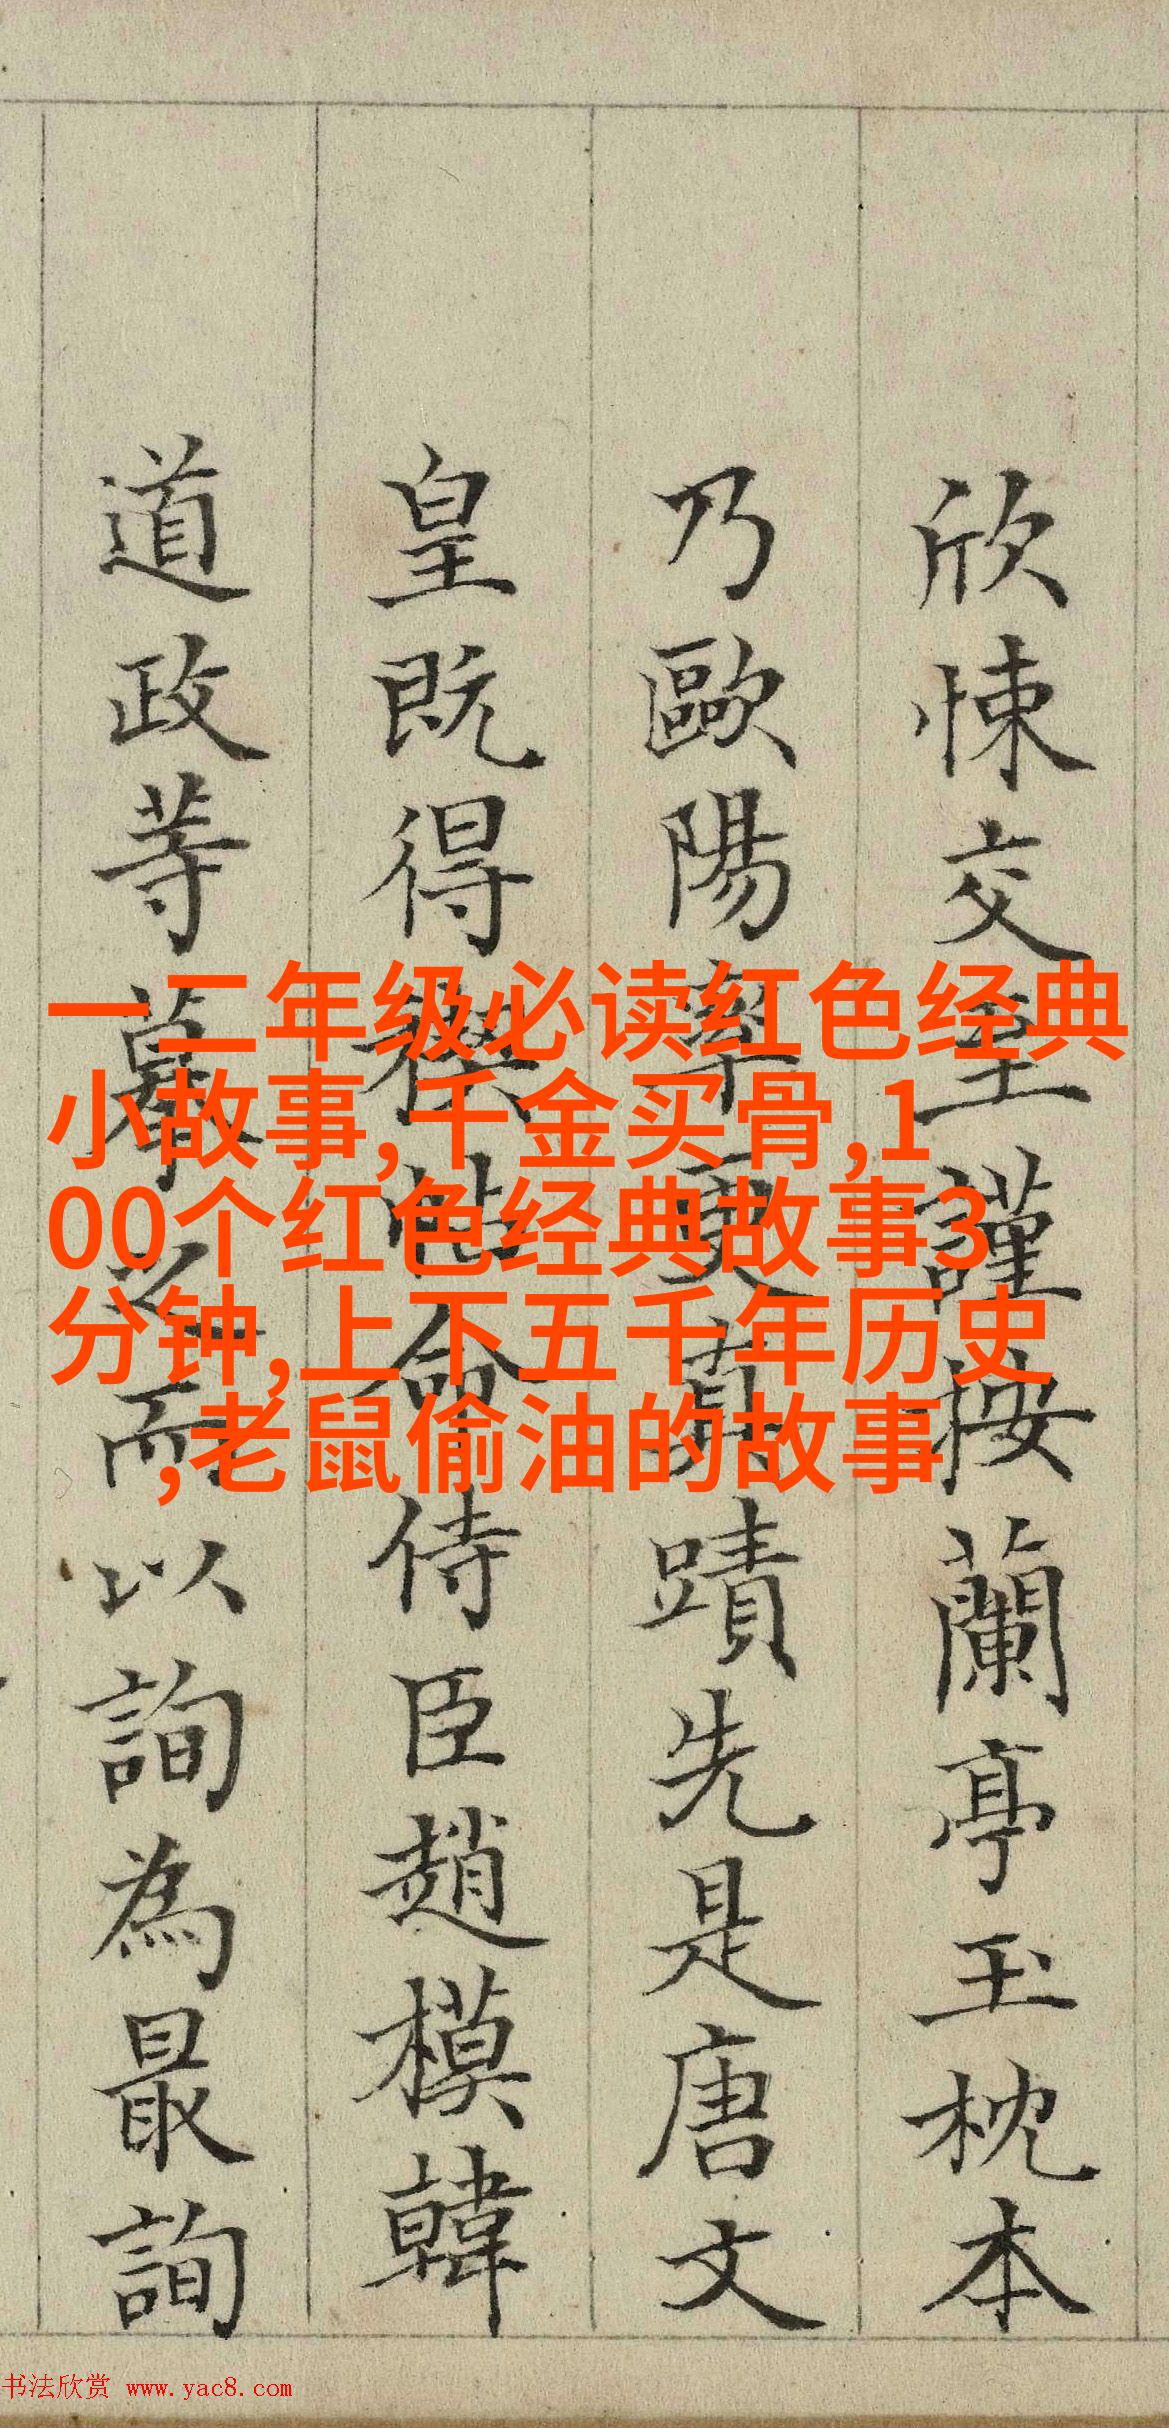 欣悚交至謹按蘭亭玉枕本
乃歐陽率更真蹟先是唐文
皇既得禊帖命侍臣趙模韓
道政等摹之而以詢為最詢
一二年级必读红色经典
小故事,千金买骨,1
00个红色经典故事3
分钟,上下五千年历史
,老鼠偷油的故事
书法欣赏 www.yac8.com